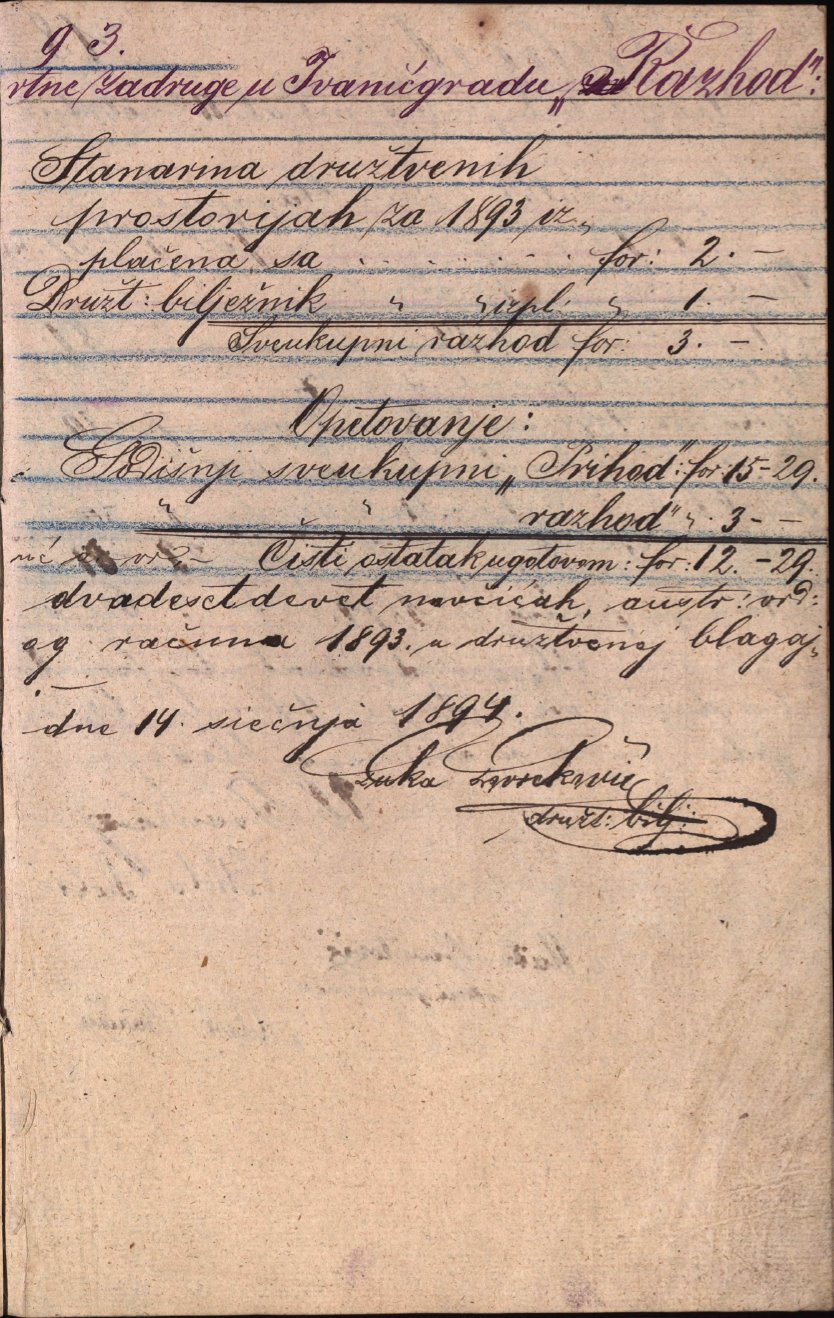 9 3.
rtne zadruge u Ivanićgradu „Razhod":
Stanarina družtvenih
prostorijah za 1893 iz„
plaćena sa . . . . . . . . for: 2. –
Družt: bilježnik " " izpl: " 1. –
Sveukupni razhod for: 3. –
Opetovanje:
Godišnji sveukupni „Prihod": for: 15–29.
" " razhod" " 3– –
Čisti ostatak u gotovom: for: 12. –29.
dvadesetdevet novčićah, austr: vrd:
og računa 1893. u družtvenoj blagaj„
dne 14. siečnja 1894.
Luka
družt: bilj: